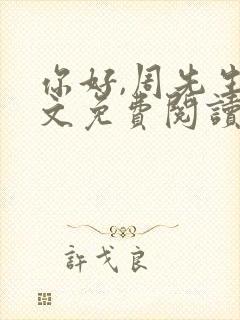 你好,周先生
文免费閱讀
許戈良